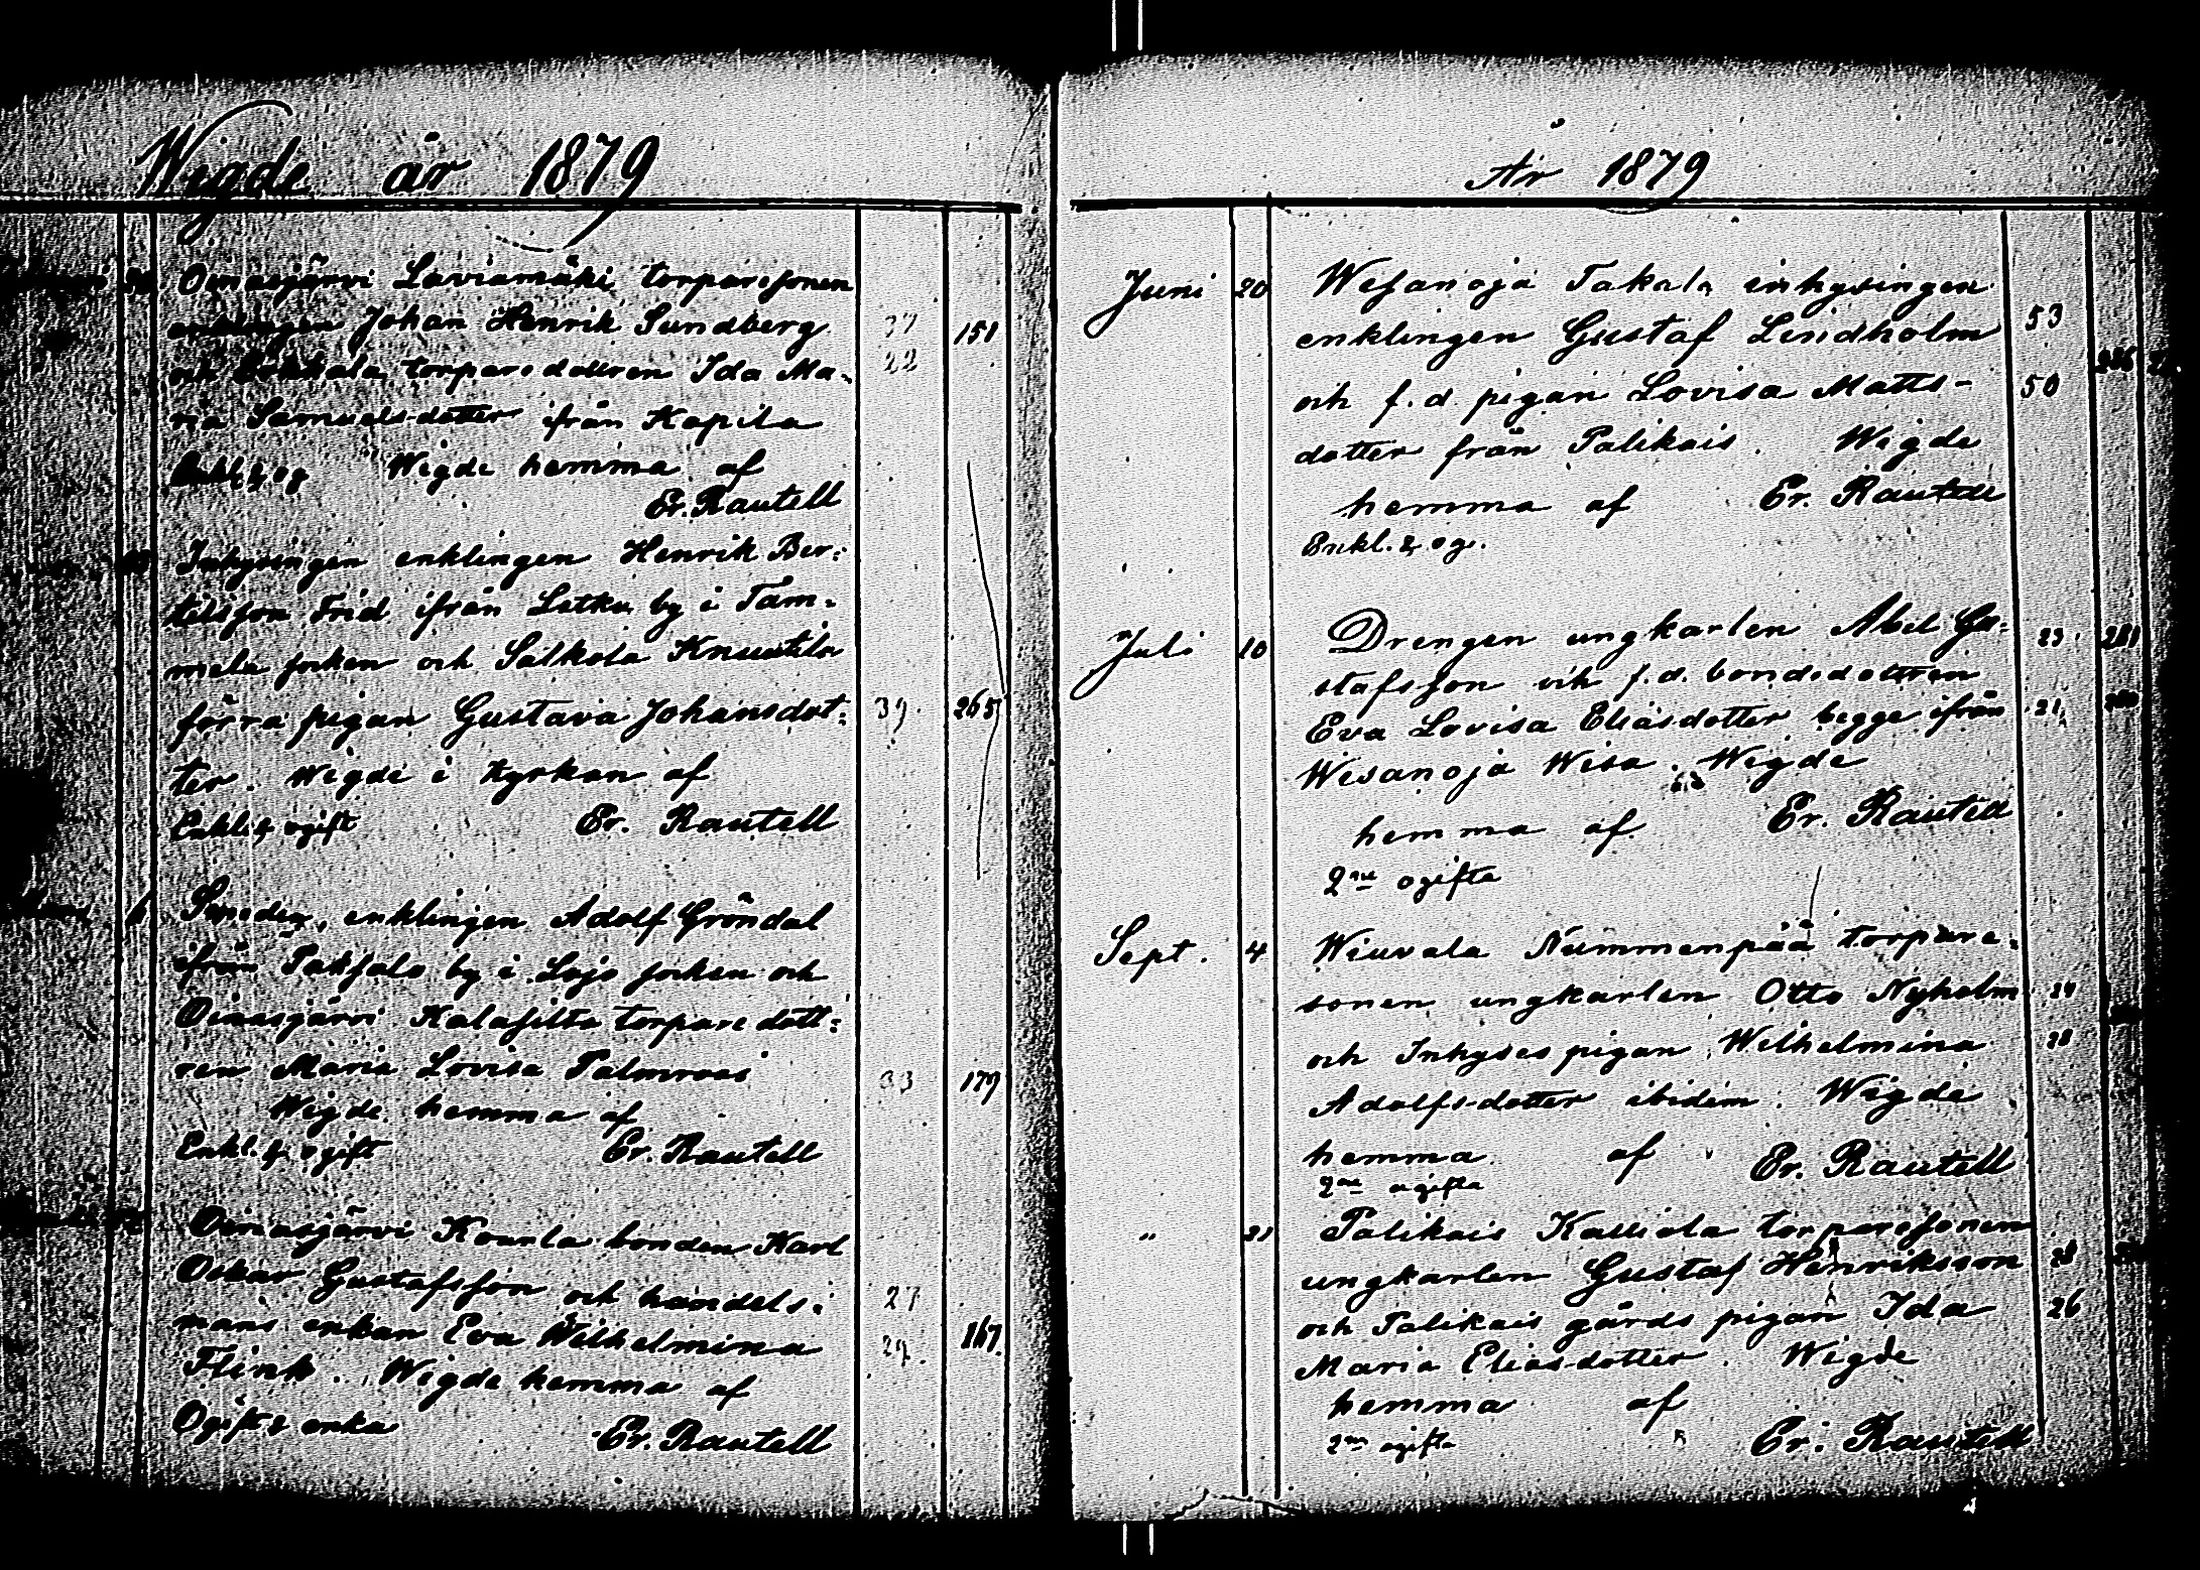 Wigde år 1879
Oinasjärvi Laviamäki torparesonen
enklingen Johan Henrik Sundberg 37 151
och torparedottren Ida Ma- 22
ria Samuelsdotter ifrån Kapila
Enkl. & og Wigde hemma af
Er. Rautell
Inhysingen enklingen Henrik Ber:
telsson Frid ifrån Letku by i Tam:
mela socken och Salkola Knuutila
förra pigan Gustava Johansdot: 39. 265
ter. Wigde i Kyrkan af
Enkl. & ogift Er. Rautell
6 Smeden, enklingen Adolf Gröndal
ifrån by i Lojo socken och
Oinasjärvi Kalasilta torparedott:
ren Maria Lovisa Palmroos 33 179
Wigde hemma af
Enkl. & ogift Er. Rautell
Oinasjärvi Kourla bonden Karl
Oskar Gustafsson och handels: 27
mans enkan Eva Wilhelmina 29. 167.
Flink. Wigde hemma af
Ogift & enka Er. Rautell
År 1879
Juni 20 Wesanoja Takala inhysingen
enklingen Gustaf Lindholm 53
och f.d. pigan Lovisa Matts- 50
dotter från Palikais. Wigde
hemma af Er. Rautell
Enkl. & og.
Juli 10 Drengen ungkarlen Abel Gu: 23. 281
stafsson och f.d. bondedottren
Eva Lovisa Eliasdotter begge ifrån 21
Wesanoja Wesa. Wigde
hemma af Er. Rautell
2ne ogifta
Sept. 4 Wiuvala Nummenpää torpare:
sonen ungkarlen Otto Nyholm 24
och Inhyses pigan Wilhelmina 28
Adolfsdotter ibidem. Wigde
hemma af Er. Rautell
2ne ogifta
" Palikais Kalliola torparesonen
ungkarlen Gustaf Henriksson 28
och Palikais gårds pigan Ida 26
Maria Eliasdotter. Wigde
hemma af
2ne ogifta Er. Rautell